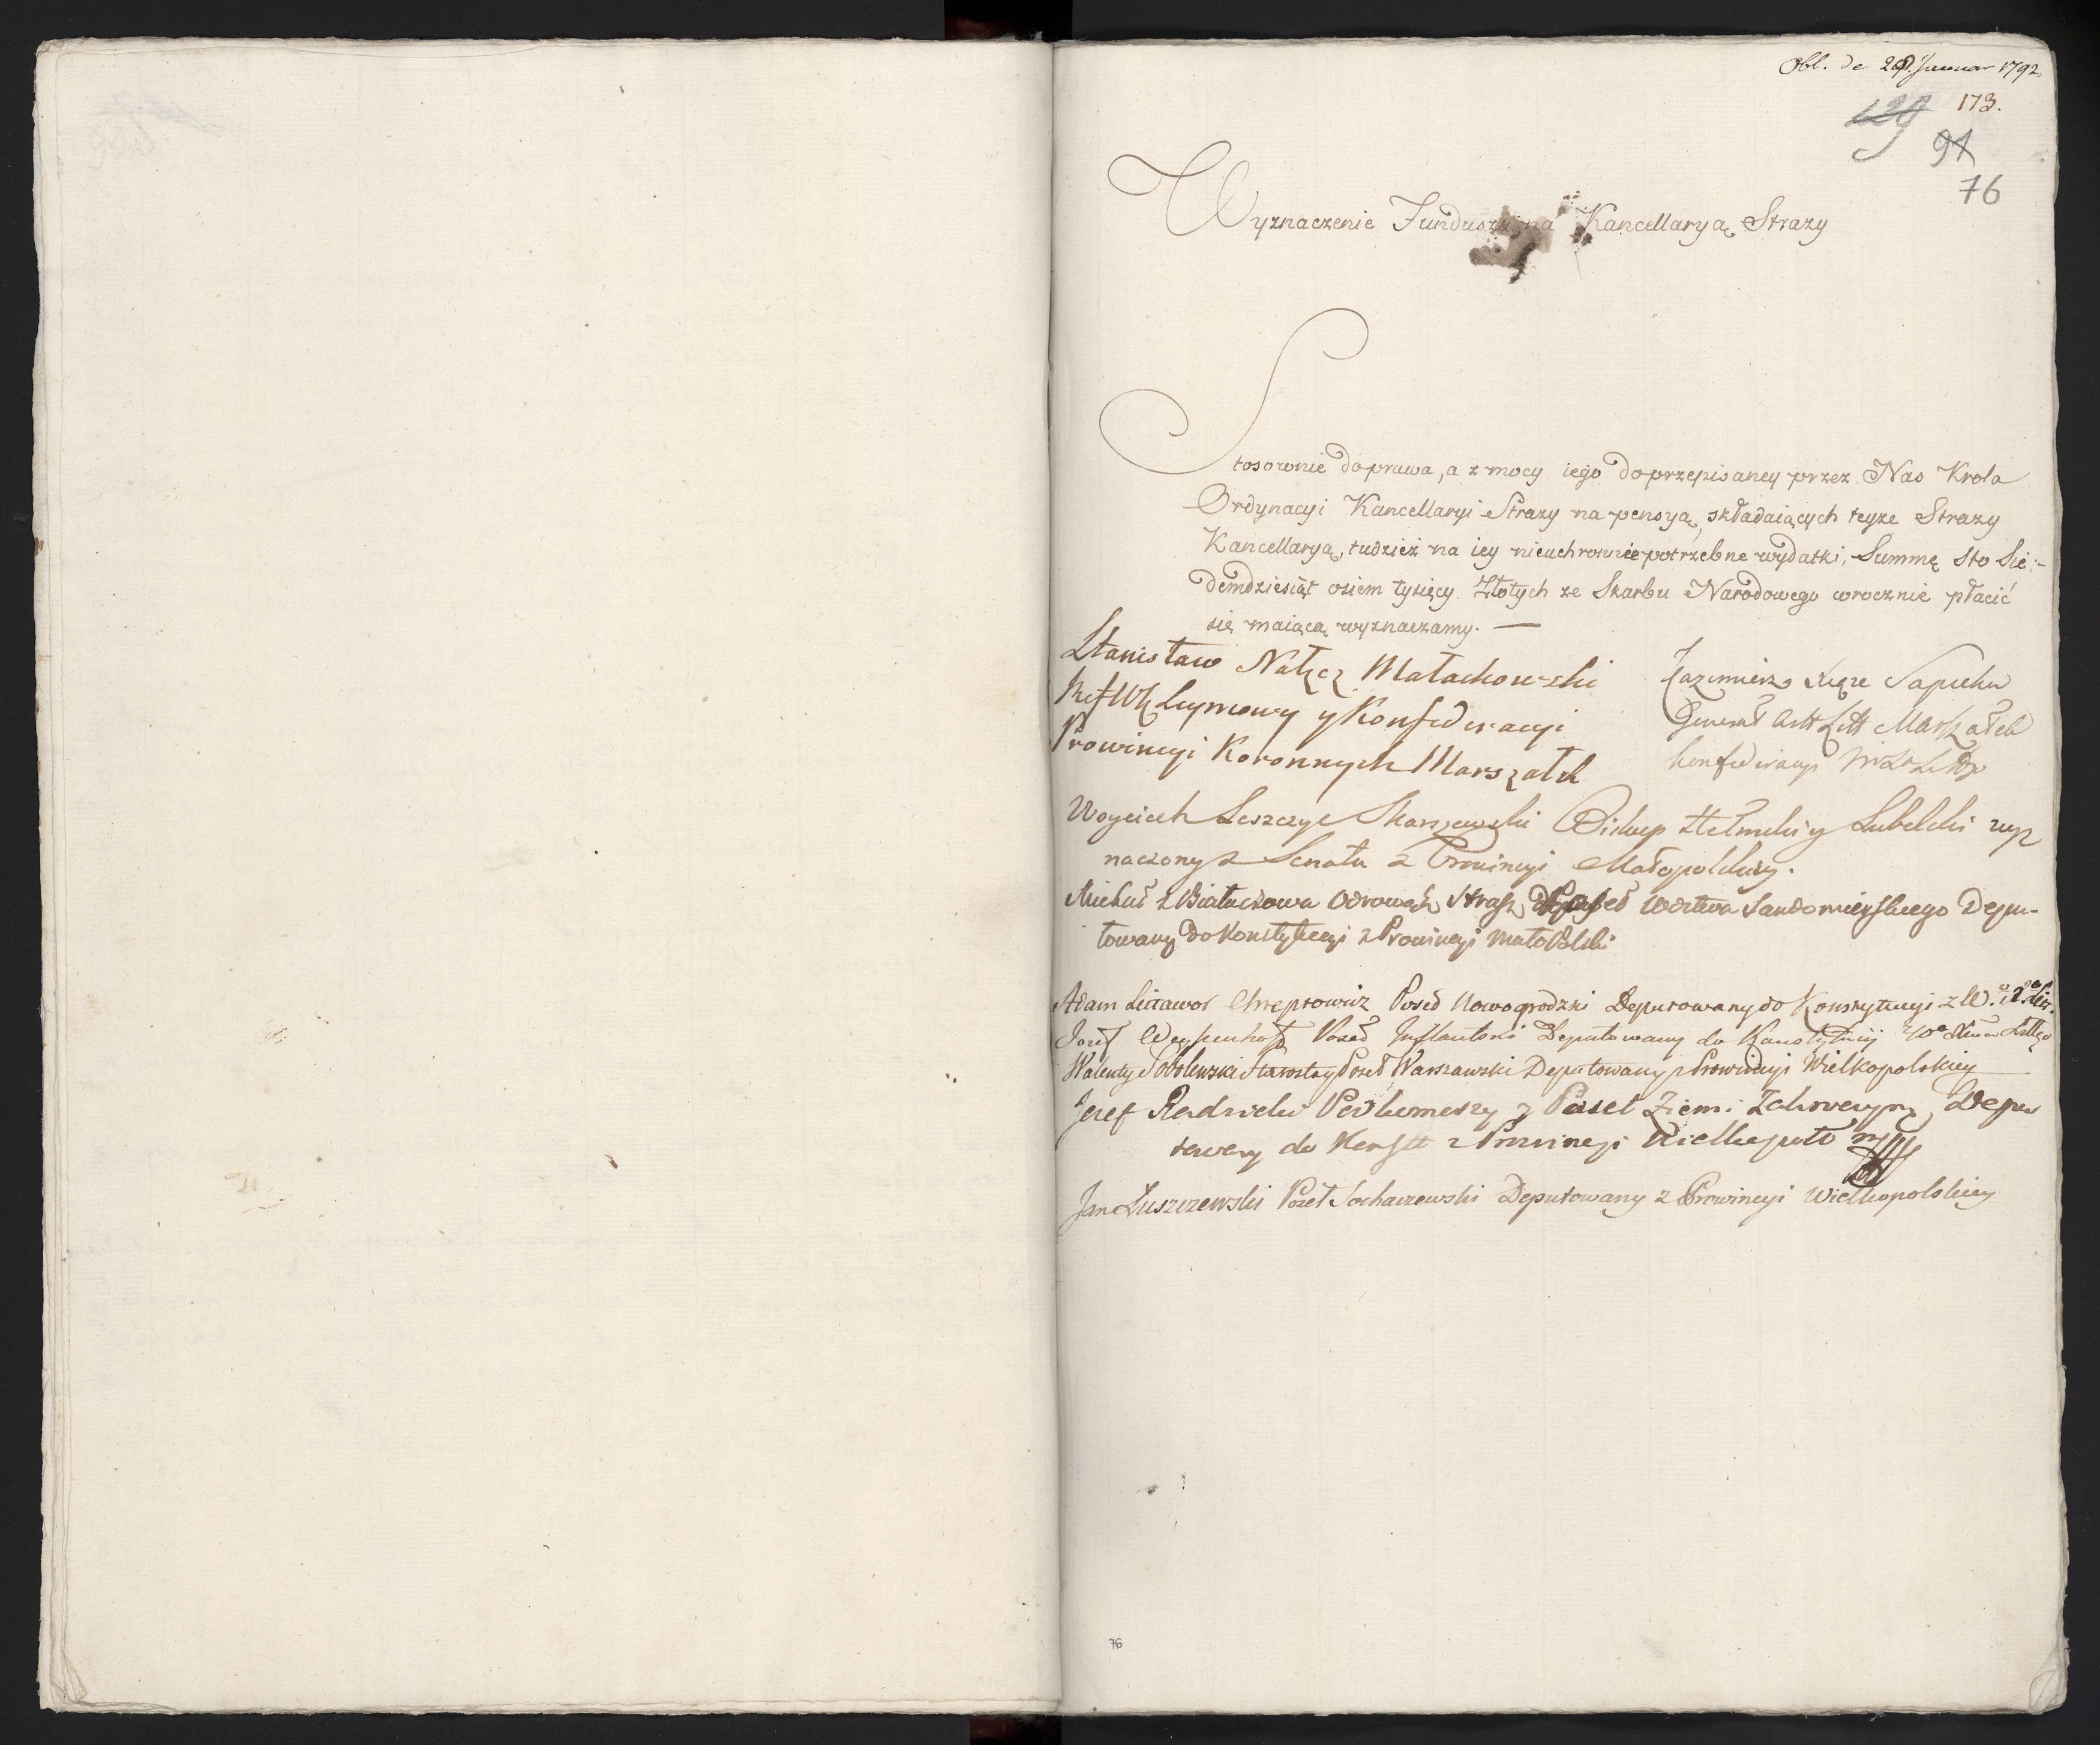 Obl. de 28. Januar 1792.
173.
129
91
76
Wyznaczenie Funduszu na Kancellaryą Strazy
Stosownie do prawa, a z mocy iego do przepisaney przez Nas Krola
Ordynacyi Kancellaryi Strazy na pensyą, składaiących teyze Strazy
Kancellaryą, tudzież na iey nieuchronnie potrzebne wydatki, Summę Sto Sie-
demdziesiąt osiem tysięcy Złotych ze Skarbu Narodowego corocznie płacić
się maiącą wyznaczamy. —
Stanisław Nałęcz Małachowski
Ref WK Seymowy y Konfederacyi
Prowincyi Koronnych Marszałek
Kazimierz Xiąże Sapieha
Generał Artt Litt Marszałek
Konfederacyi
Woyciech Leszczyc Skarszewski Biskup Hełmski y Lubelski wyz
naczony z Senatu z Prowincyi Małopolskiey.
Michał z Białaczowa Odrowąż Strasz Poseł Wdztwa Sandomierskiego Depu-
towany do Konstytucyi z Prowincyi Mało Polski
Adam Littawor Chreptowicz Poseł Nowogrodzki Deputowany do Konstytucyi z W. X. Lit.
Jozef Weyssenhoff Poseł Inflantski Deputowany do Konstytucyi
Walenty Sobolewski Starosta y Poseł Warszawski Deputowany z Prowincyi Wielkopolskiey
Jozef Radzicki Podkomorzy y Poseł Ziemi Zakroczym, Depu
towany do Konstt z Prowincyi Wielkopols
Jan Łuszczewski Poseł Sochaczewski Deputowany z Prowincyi Wielkopolskiey
76